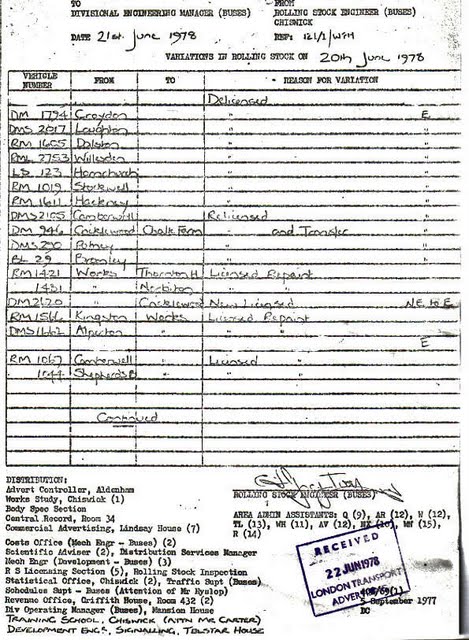 TO FROM
DIVISIONAL ENGINEERING MANAGER (BUSES) ROLLING STOCK ENGINEER (BUSES)
CHISWICK
DATE 21st June 1978 REF: 121/1/WFH
VARIATIONS IN ROLLING STOCK ON 20th June 1978
VEHICLE NUMBER FROM TO REASON FOR VARIATION
Delicensed
DM 1794 Croydon " E
DMS 2017 Loughton " "
RM 1605 Dalston " "
RML 2753 Willesden " "
LS 123 Hornchurch " "
RM 1019 Stockwell " "
RM 1611 Hackney " "
DMS 2105 Camberwell Relicensed "
DM 946 Cricklewood Chalk Farm " and Transfer "
DMS 200 Putney " "
BL 29 Bromley " "
RM 1421 Works Thornton H Licensed Repaint
1431 " Norbiton " "
DM 2620 Cricklewood New Licensed NE to E
RM 1566 Kingston Works Licensed Repaint
DMS 1662 Alperton " " "
E
RM 1067 Camberwell Licensed "
1044 Shepherds B " "
Continued
DISTRIBUTION:
Advert Controller, Aldenham
Works Study, Chiswick (1)
Body Spec Section
Central Record, Room 34
Commercial Advertising, Lindsay House (7)
Costs Office (Mech Engr - Buses) (2)
Scientific Adviser (2), Distribution Services Manager
Mech Engr (Development - Buses) (3)
R S Licensing Section (5), Rolling Stock Inspection
Statistical Office, Chiswick (2), Traffic Supt (Buses)
Schedules Supt - Buses (Attention of Mr Hyslop)
Revenue Office, Griffith House, Room 432 (2)
Div Operating Manager (Buses), Mansion House
TRAINING SCHOOL, CHISWICK (ATTN MR CARTER)
DEVELOPMENT ENGR, SIGNALLING, TELSTAR HOUSE
ROLLING STOCK ENGINEER (BUSES)
AREA ADMIN ASSISTANTS: Q (9), AR (12), W (12),
TL (13), WH (11), AV (12), NX (10), MW (15),
R (14)
RECEIVED
22 JUN 1978
LONDON TRANSPORT
September 1977
DC